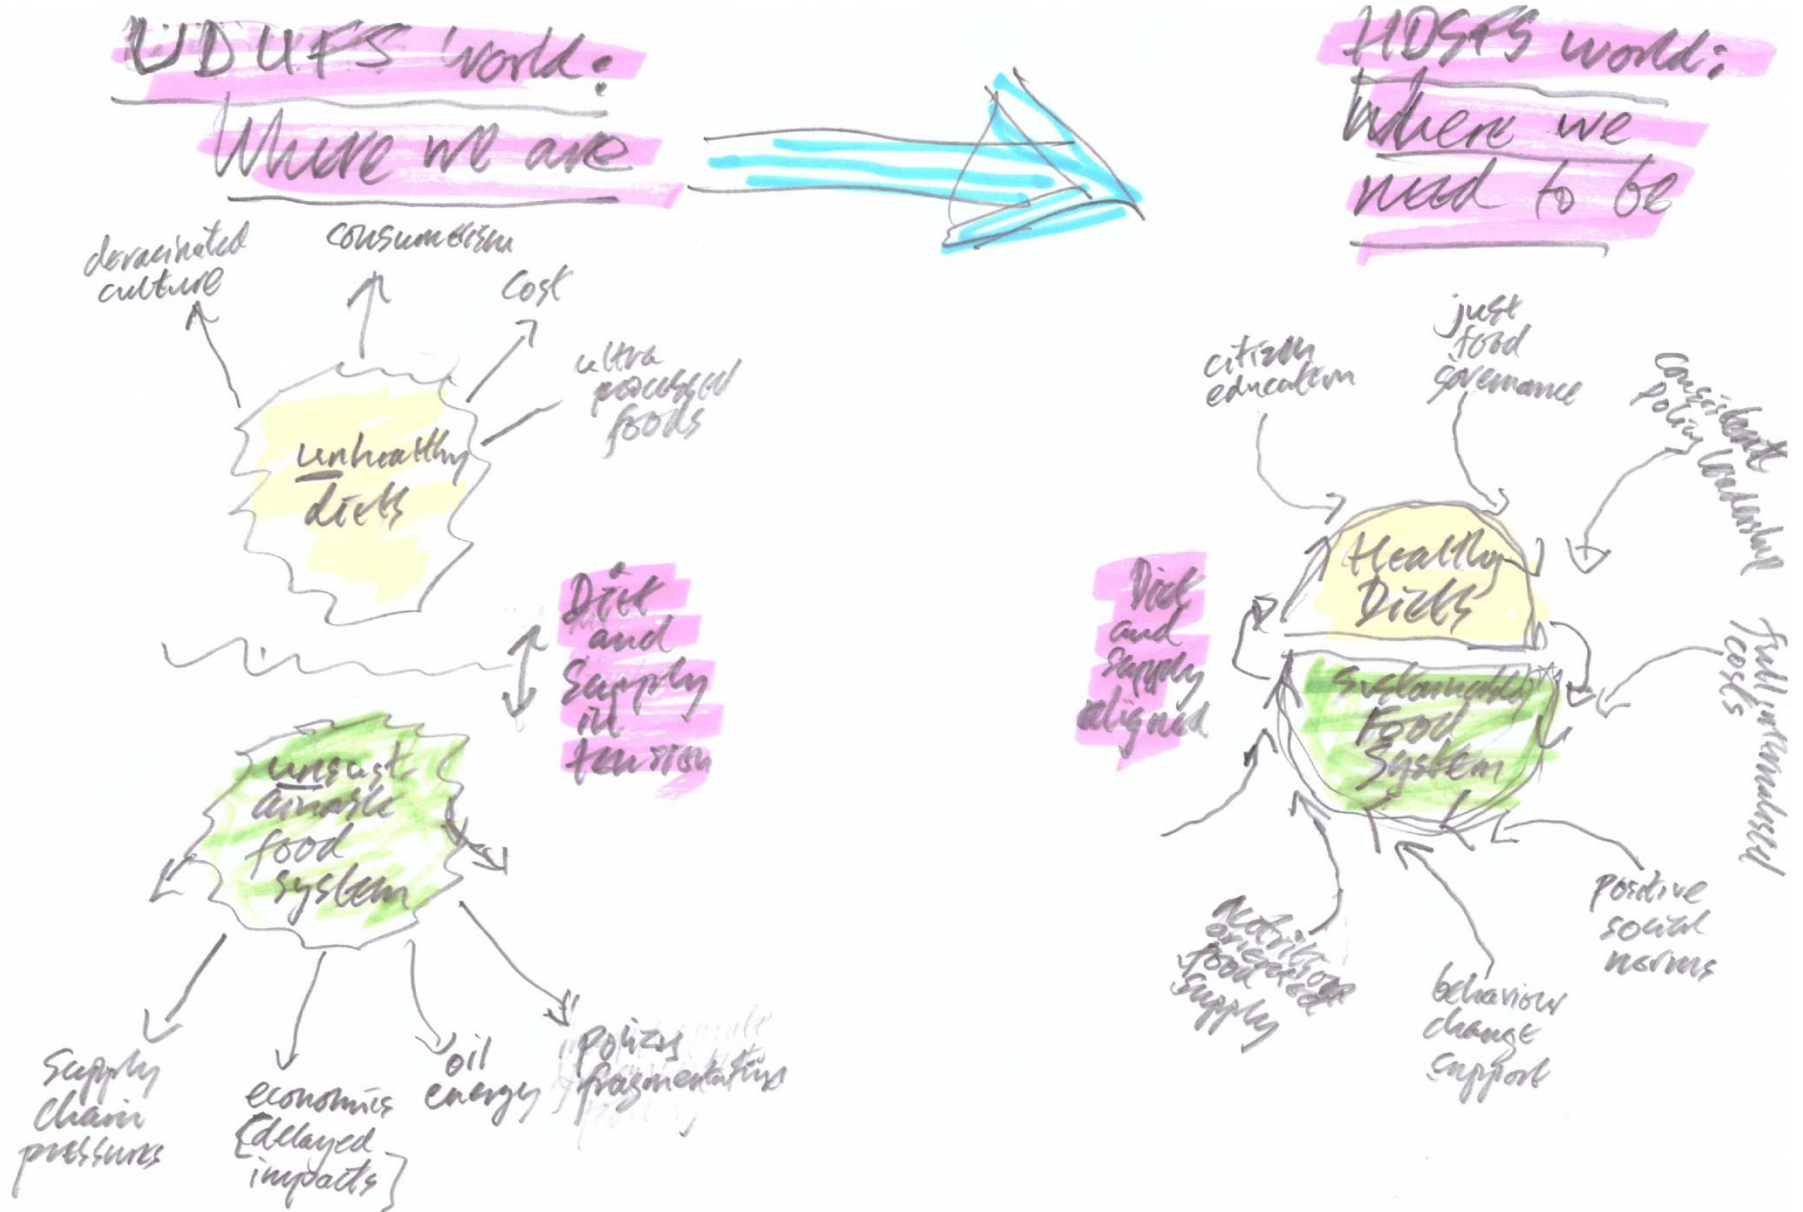 UDUFS world:
Where we are
deracinated
culture
consumerism
cost
ultra
processed
foods
unhealthy
diets
Diet
and
supply
in
tension
unsust
ainable
food
system
supply
chain
pressures
economics
[delayed
impacts]
oil
energy
fragmentation
HDSFS world:
where we
need to be
citizen
education
just
food
governance
consistent
policy
leadership
Healthy
Diets
Diet
and
supply
aligned
Food
System
full internalised
costs
positive
social
norms
behaviour
change
support
food
supply